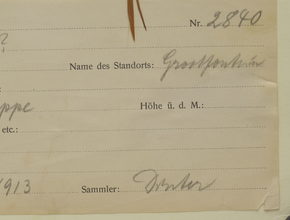 Nr. 2840
?
Name des Standorts: Grootfontein
ppe Höhe ü. d. M.:
etc.:
1913 Sammler: Dinter